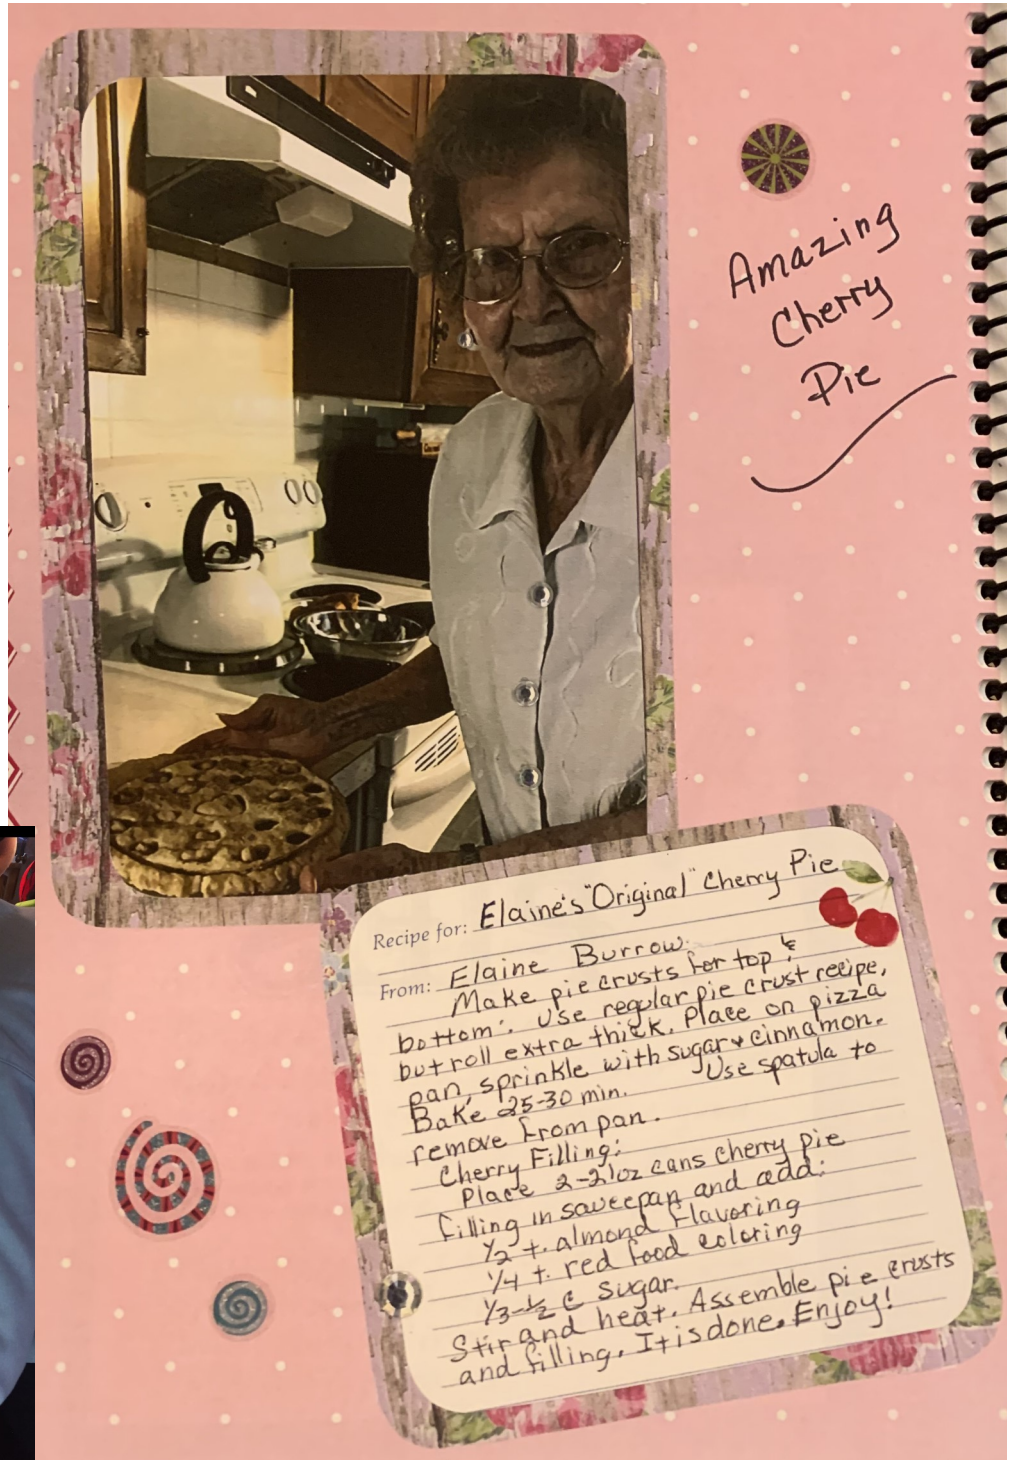 Amazing
Cherry
Pie
Recipe for: Elaine's "Original" Cherry Pie
From: Elaine Burrow
Make pie crusts for top &
bottom. Use regular pie crust recipe,
but roll extra thick. Place on pizza
pan, sprinkle with sugar & cinnamon.
Bake 25-30 min. Use spatula to
remove from pan.
Cherry Filling:
Place 2-21oz cans cherry pie
filling in saucepan and add:
1/2 t. almond flavoring
1/4 t. red food coloring
1/3-1/2 c sugar.
Stir and heat. Assemble pie crusts
and filling. It is done. Enjoy!